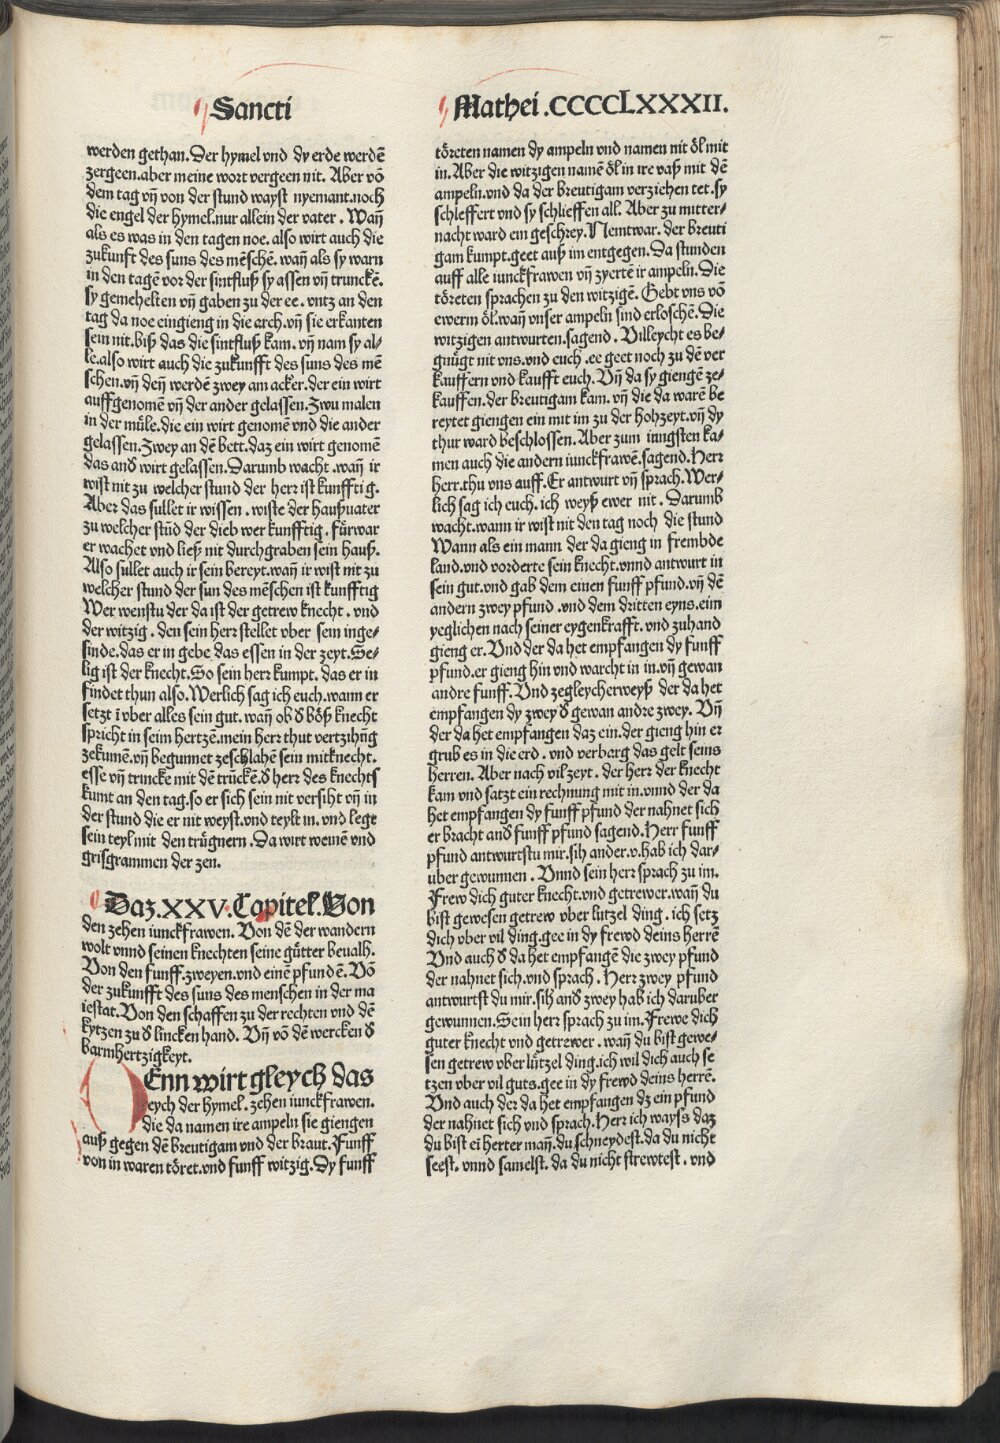 Sancti
Mathei .CCCCLXXXII.
werden gethan. Der hymel vnd dy erde werdē
zergeen. aber meine wort vergeen nit. Aber võ
dem tag vñ von der stund wayst nyemant. noch
die engel der hymel. nur allein der vater . Wañ
als es was in den tagen noe. also wirt auch die
zukunft des suns des mēschē. wañ als sy warn
in den tagē vor der sintfluß sy assen vñ trunckē.
sy gemehelten vñ gaben zu der ee . vntz an den
tag da noe eingieng in die arch. vñ sie erkanten
sein nit. biß das die sintfluß kam . vñ nam sy al⸗
le. also wirt auch die zukunfft des suns des mē
schen. vñ deñ werdē zwey am acker. der ein wirt
auffgenomē vñ der ander gelassen. Zwu malen
in der müle. die ein wirt genomē vnd die ander
gelassen. Zwey an dē bett. daz ein wirt genomē
das and̄ wirt gelassen. Darumb wacht . wañ ir
wist nit zu welcher stund der herr ist kunfftig.
Aber das sullet ir wissen . wiste der haußuater
zu welcher stūd der dieb wer kunfftig . fürwar
er wachet vnd ließ nit durchgraben sein hauß.
Also sullet auch ir sein bereyt. wañ ir wist nit zu
welcher stund der sun des mēschen ist kunfftig
Wer wenstu der da ist der getrew knecht . vnd
der witzig . den sein herr stellet vber sein inge⸗
sinde. das er in gebe das essen in der zeyt. Se⸗
lig ist der knecht. So sein herr kumpt. das er in
findet thun also. Werlich sag ich euch. wann er
setzt ī vber alles sein gut. wañ ob d̄ böß knecht
spricht in seim hertzē. mein herr thut vertzihūg
zekumē. vñ begunnet zeschlahē sein mitknecht.
esse vñ trincke mit dē trückē. d̄ herr des knechts
kumt an den tag. so er sich sein nit versiht vñ in
der stund die er nit weyst. vnd teylt in. vnd legt
sein teyl mit den trügnern . Da wirt weinē vnd
grisgrammen der zen.
Daz .XXV. Capitel. Von
den zehen iunckfrawen. Von dē der wandern
wolt vnnd seinen knechten seine gütter beualh.
Von den funff. zweyen. vnd einē pfundē. Võ
der zukunfft des suns des menschen in der ma
iestat. Von den schaffen zu der rechten vnd dē
kytzen zu d̄ lincken hand. Vñ võ dē wercken d̄
barmhertzigkeyt.
DEnn wirt gleych das
reych der hymel . zehen iunckfrawen.
die da namen ire ampeln sie giengen
auß gegen dē breutigam vnd der braut. Funff
von in waren töret. vnd funff witzig. Dy funff
töreten namen dy ampeln vnd namen nit öl mit
in. Aber die witzigen namē öl in ire vaß mit dē
ampeln. vnd da der breutigam verziehen tet. sy
schleffert vnd sy schlieffen all. Aber zu mitter⸗
nacht ward ein geschrey. Nemtwar. der breuti
gam kumpt. geet auß im entgegen. Da stunden
auff alle iunckfrawen vñ zyertē ir ampeln. Die
töreten sprachen zu den witzigē. Gebt vns võ
ewerm öl. wañ vnser ampeln sind erloschē. Die
witzigen antwurten. sagend . Villeycht es be⸗
gnügt nit vns. vnd euch . ee geet noch zu dē ver
kauffern vnd kaufft euch. Vñ da sy giengē ze⸗
kauffen. der breutigam kam. vñ die da warē be
reytet giengen ein mit im zu der hohzeyt. vñ dy
thur ward beschlossen. Aber zum iungsten ka⸗
men auch die andern iunckfrawē. sagend. Herr
herr. thu vns auff. Er antwurt vñ sprach. Wer⸗
lich sag ich euch. ich weyß ewer nit . Darumb
wacht. wann ir wist nit den tag noch die stund
Wann als ein mann der da gieng in frembde
land. vnd vorderte sein knecht. vnnd antwurt in
sein gut. vnd gab dem einen funff pfund. vñ dē
andern zwey pfund . vnd dem dritten eyns. eim
yeglichen nach seiner eygenkrafft. vnd zuhand
gieng er. Vnd der da het empfangen dy funff
pfund. er gieng hin vnd warcht in in. vñ gewan
andre funff. Vnd zegleycherweyß der da het
empfangen dy zwey d̄ gewan andre zwey. Vñ
der da het empfangen daz ein. der gieng hin er
grub es in die erd . vnd verbarg das gelt seins
herren. Aber nach vil zeyt . der herr der knecht
kam vnd satzt ein rechnung mit in. vnnd der da
het empfangen dy funff pfund der nahnet sich
er bracht and̄ funff pfund sagend. Herr funff
pfund antwurtstu mir. sih ander .v. hab ich dar⸗
uber gewunnen . Vnnd sein herr sprach zu im.
Frew dich guter knecht. vnd getrewer. wañ du
bist gewesen getrew vber lützel ding . ich setz
dich vber vil ding. gee in dy frewd deins herrē
Vnd auch d̄ da het empfangē die zwey pfund
der nahnet sich. vnd sprach . Herr zwey pfund
antwurtst du mir. sih and̄ zwey hab ich daruber
gewunnen. Sein herr sprach zu im. Frewe dich
guter knecht vnd getrewer . wañ du bist gewe⸗
sen getrew vber lützel ding. ich wil dich auch se
tzen vber vil guts. gee in dy frewd deins herrē.
Vnd auch der da het empfangen dz ein pfund
der nahnet sich vnd sprach. Herr ich wayß daz
du bist ei herter mañ. du schneydest. da du nicht
seest. vnnd samelst. da du nicht strewtest . vnd